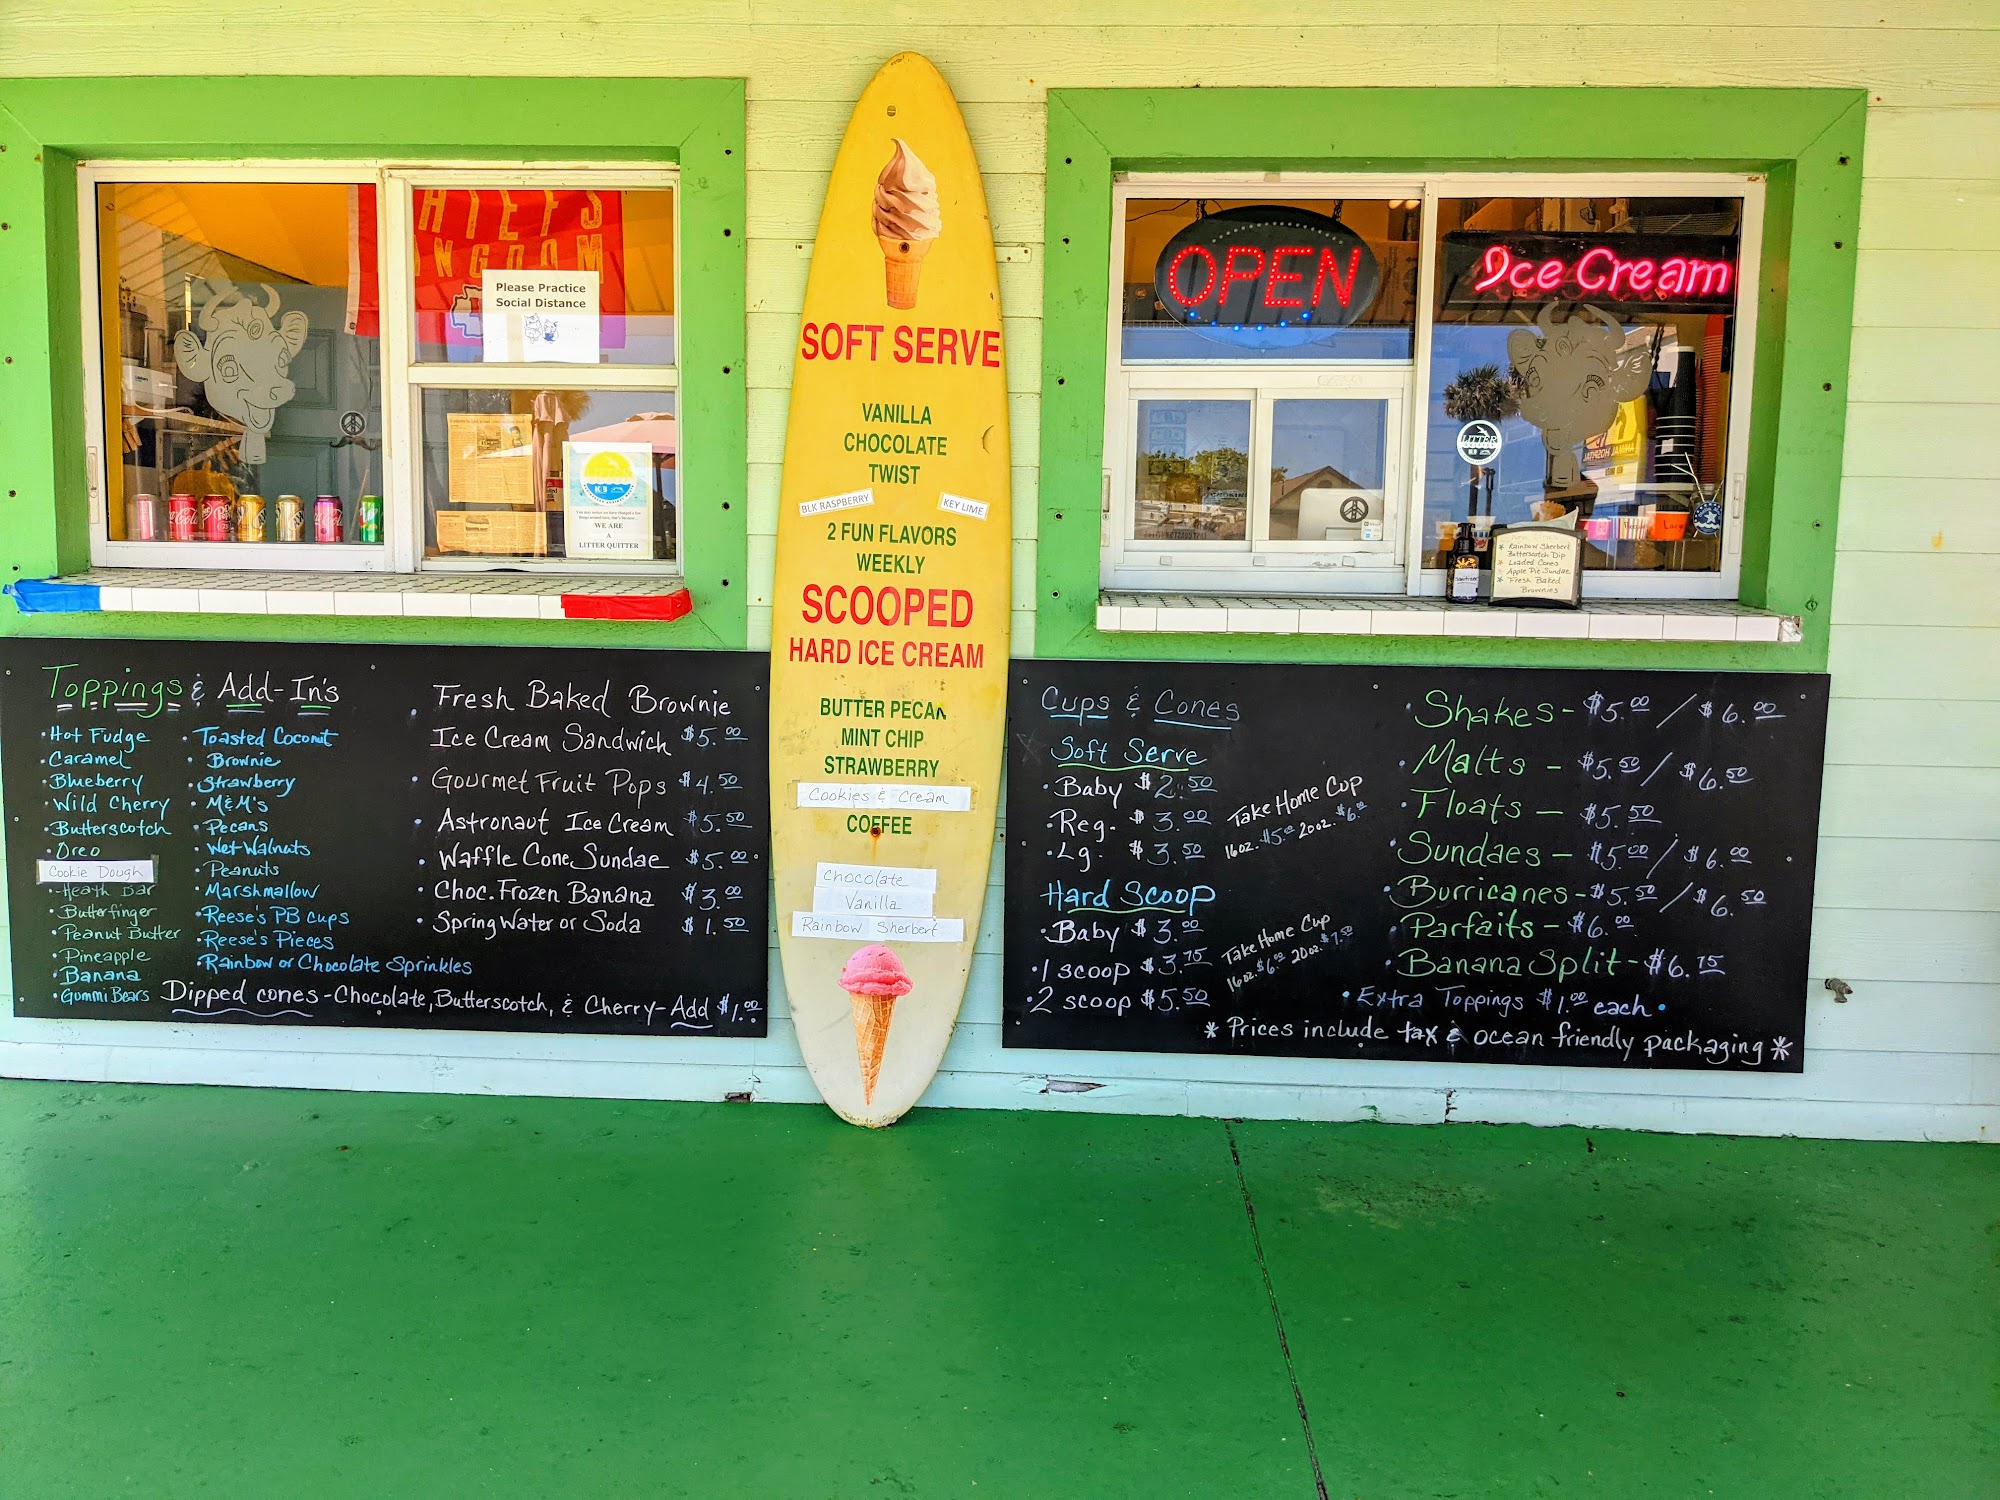 CHIEFS
KINGDOM
Please Practice
Social Distance
WE ARE
A
LITTER QUITTER
Toppings & Add-In's
• Hot Fudge
• Caramel
• Blueberry
• Wild Cherry
• Butterscotch
• Oreo
Cookie Dough
• Heath Bar
• Butterfinger
• Peanut Butter
• Pineapple
• Banana
• Gummi Bears
• Toasted Coconut
• Brownie
• Strawberry
• M&M's
• Pecans
• Wet Walnuts
• Peanuts
• Marshmallow
• Reese's PB Cups
• Reese's Pieces
• Rainbow or Chocolate Sprinkles
• Fresh Baked Brownie
Ice Cream Sandwich $5.00
• Gourmet Fruit Pops $4.50
• Astronaut Ice Cream $5.50
• Waffle Cone Sundae $5.00
• Choc. Frozen Banana $3.00
• Spring Water or Soda $1.50
Dipped cones - Chocolate, Butterscotch, & Cherry - Add $1.00
SOFT SERVE
VANILLA
CHOCOLATE
TWIST
BLK RASPBERRY
KEY LIME
2 FUN FLAVORS
WEEKLY
SCOOPED
HARD ICE CREAM
BUTTER PECAN
MINT CHIP
STRAWBERRY
Cookies & Cream
COFFEE
Chocolate
Vanilla
Rainbow Sherbert
OPEN
Ice Cream
LITTER
ANIMAL HOSPITAL
Rainbow Sherbert
Butterscotch Dip
Loaded Cones
Apple Pie Sundae
Fresh Baked
Brownies
Cups & Cones
Soft Serve
• Baby $2.50
• Reg. $3.00
• Lg. $3.50
Take Home Cup
16oz. $5.00 20oz. $6.00
Hard Scoop
• Baby $3.00
• 1 scoop $3.75
• 2 scoop $5.50
Take Home Cup
16oz. $6.00 20oz. $7.50
• Shakes - $5.00 / $6.00
• Malts - $5.50 / $6.50
• Floats - $5.50
• Sundaes - $5.00 / $6.00
• Burricanes - $5.50 / $6.50
• Parfaits - $6.00
• Banana Split - $6.75
• Extra Toppings $1.00 each •
* Prices include tax & ocean friendly packaging *